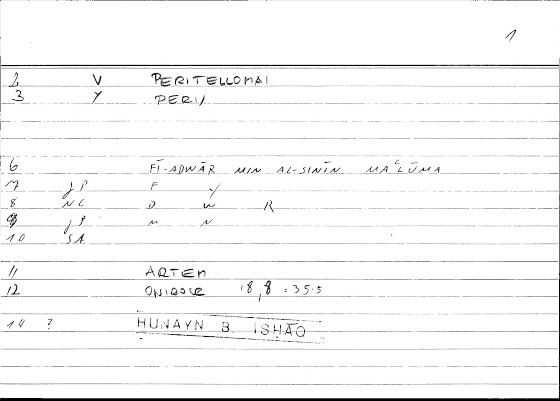 1
2 V PERITELLOMAI
3 Y PERI/
6 FĪ-ADWĀR MIN AL-SINĪN MAʿLŪMA
7 jP F Y
8 NC D W R
9 jP M N
10 SA
11 ARTEM
12 ONIROCR 18,8 = 35.5
14 ? HUNAYN B. ISHĀQ